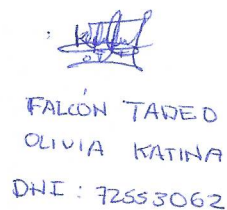 FALCÓN TADEO
OLIVIA KATINA
DNI: 72553062